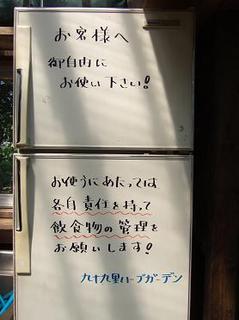 お客様へ
御自由に
お使い下さい!
お使うにあたっては
各自責任を持って
飲食物の管理を
お願いします!
九十九里ハーブガーデン